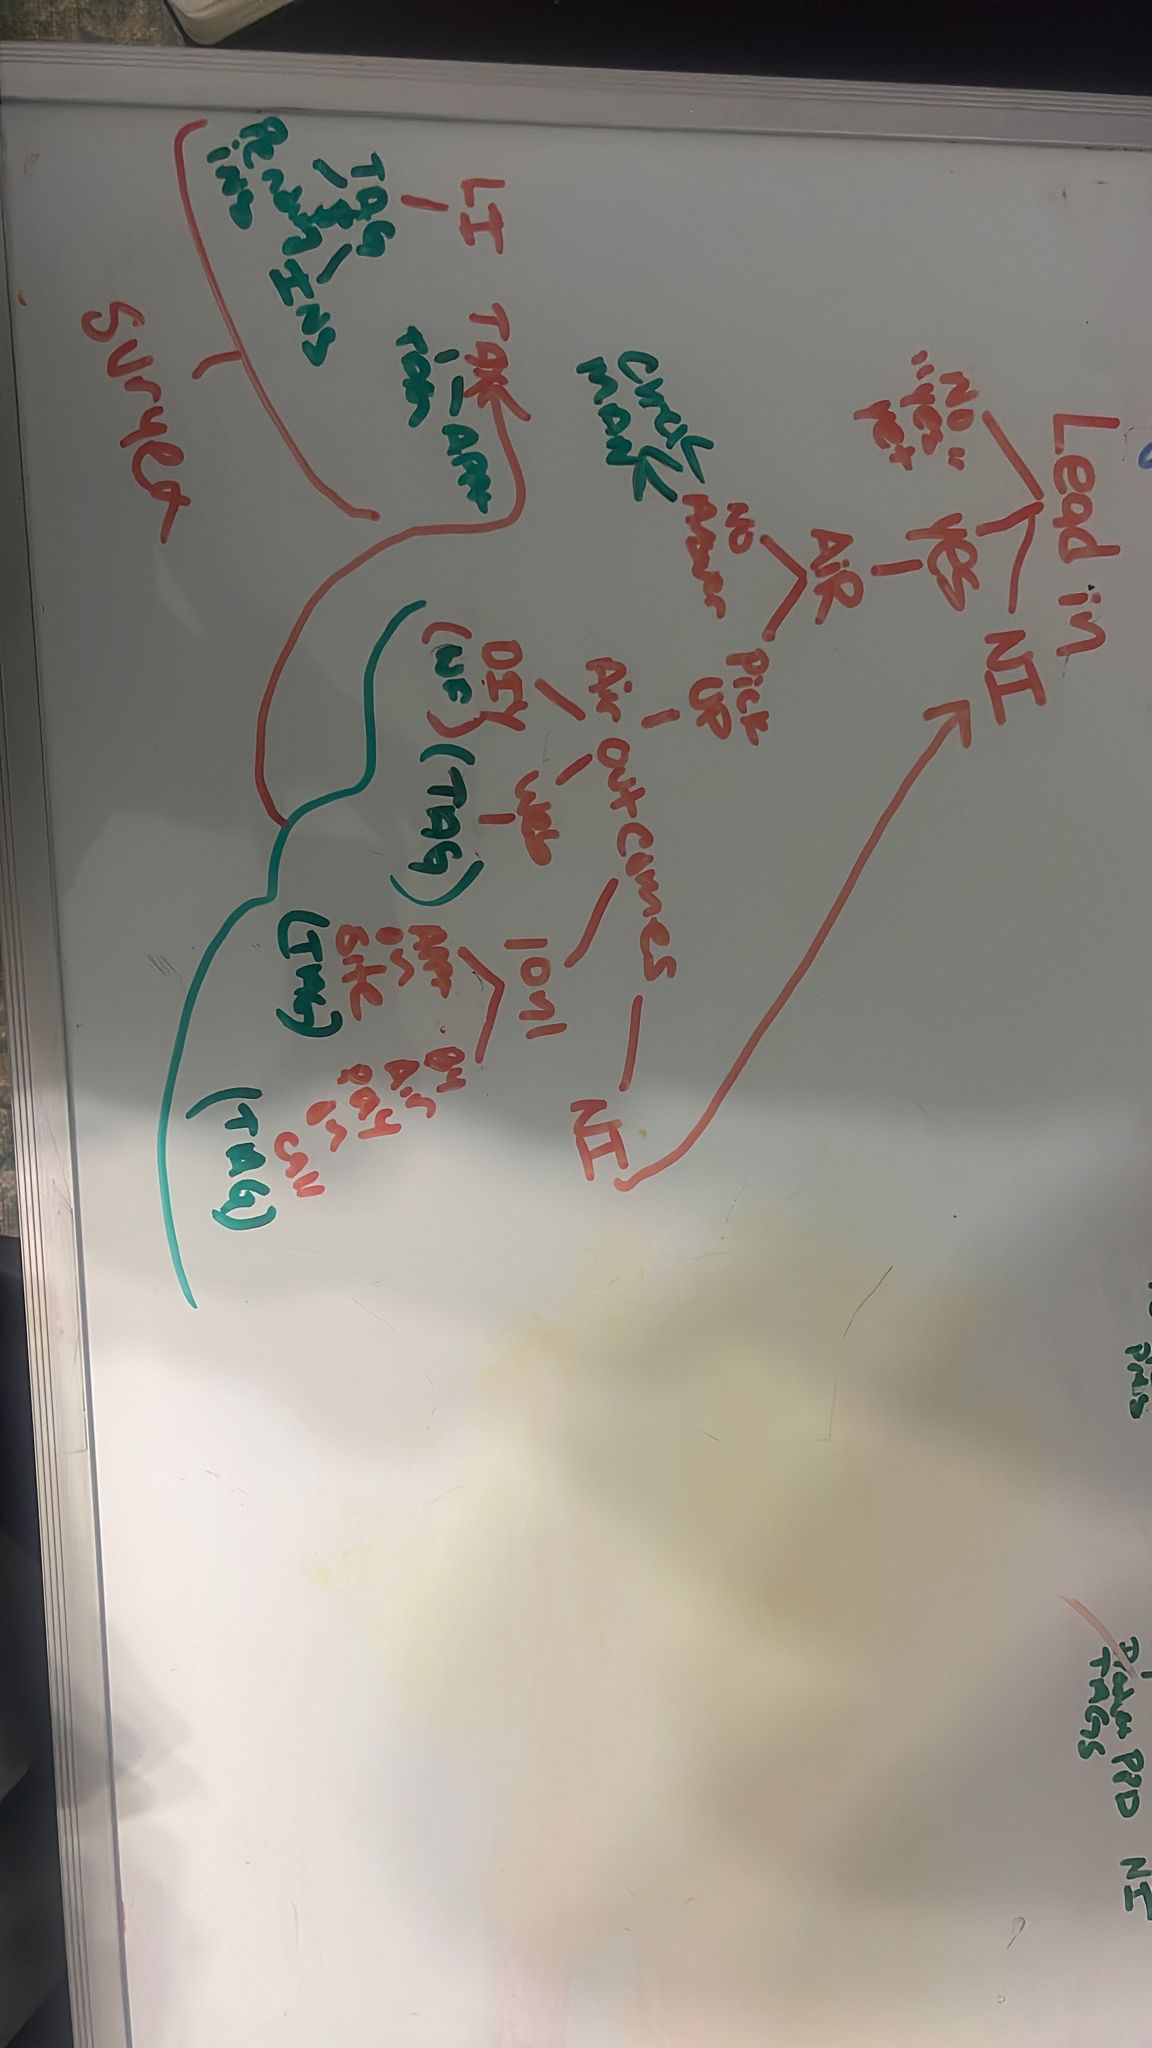 PMS
PPD NI
TAGS
Lead in
NI
NO
"yes"
yet
yes
AiR
NO
Answer
Pick
UP
MAN
Air outcomes
NI
DIY
(WF)
Web
(TAG)
10n1
APPT
on
Site
(TAG)
By
Air
PAY
on
CAll
(TAG)
LI
TAG
Pending
INS
INS
TAX
APPT
TAG
Suryea